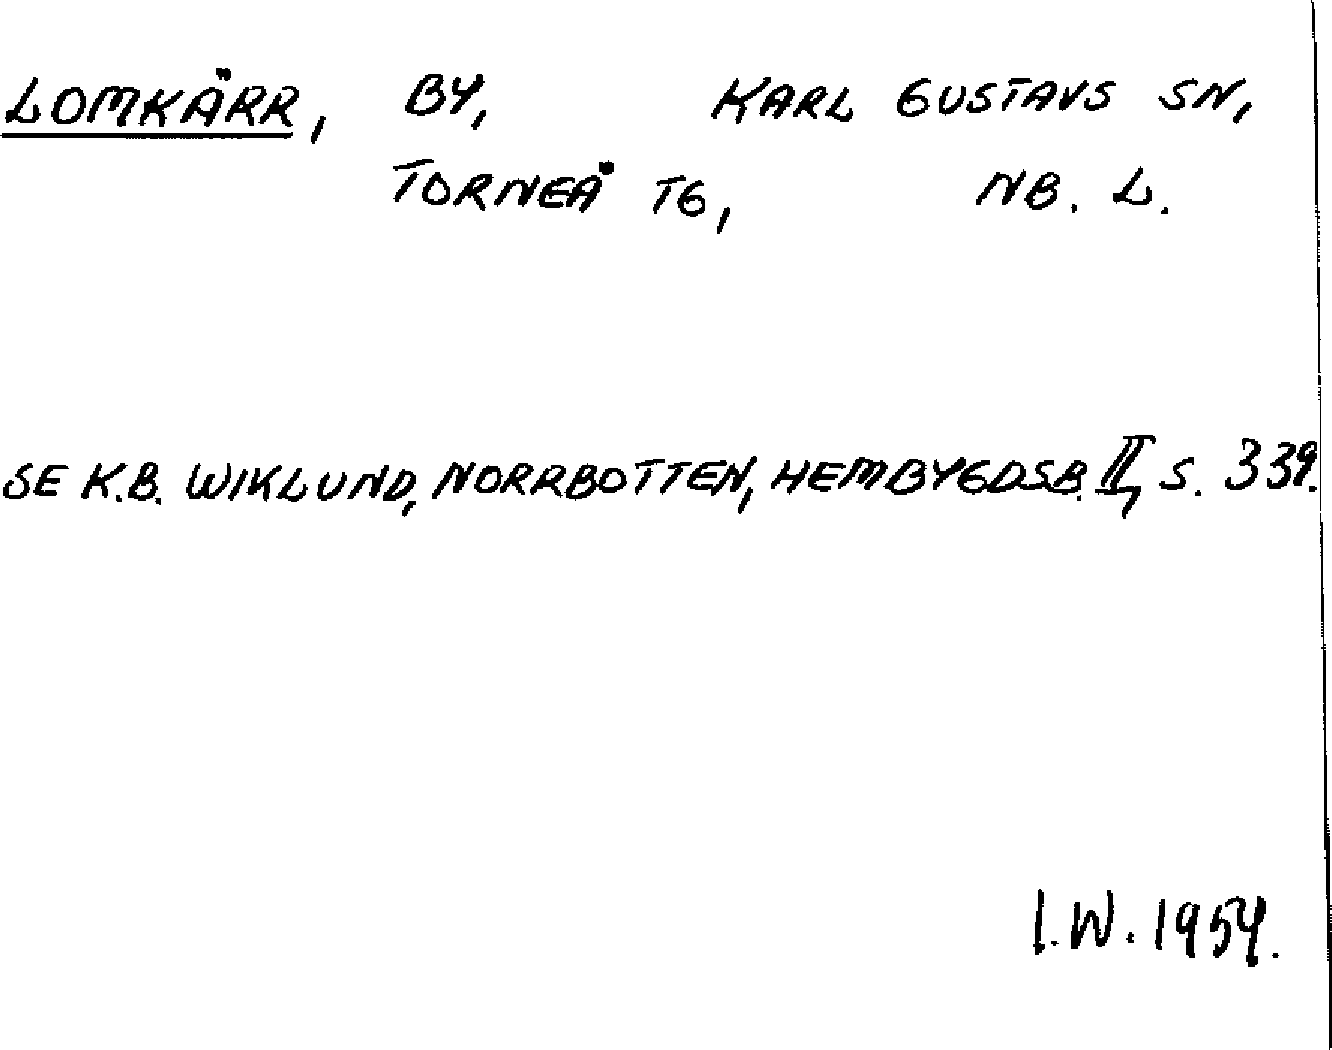 LOMKÄRR, BY, KARL GUSTAVS SN,
TORNEÅ TG, NB. L.
SE K.B. WIKLUND, NORRBOTTEN, HEMBYGDSB. II, S. 339.
I.W. 1954.